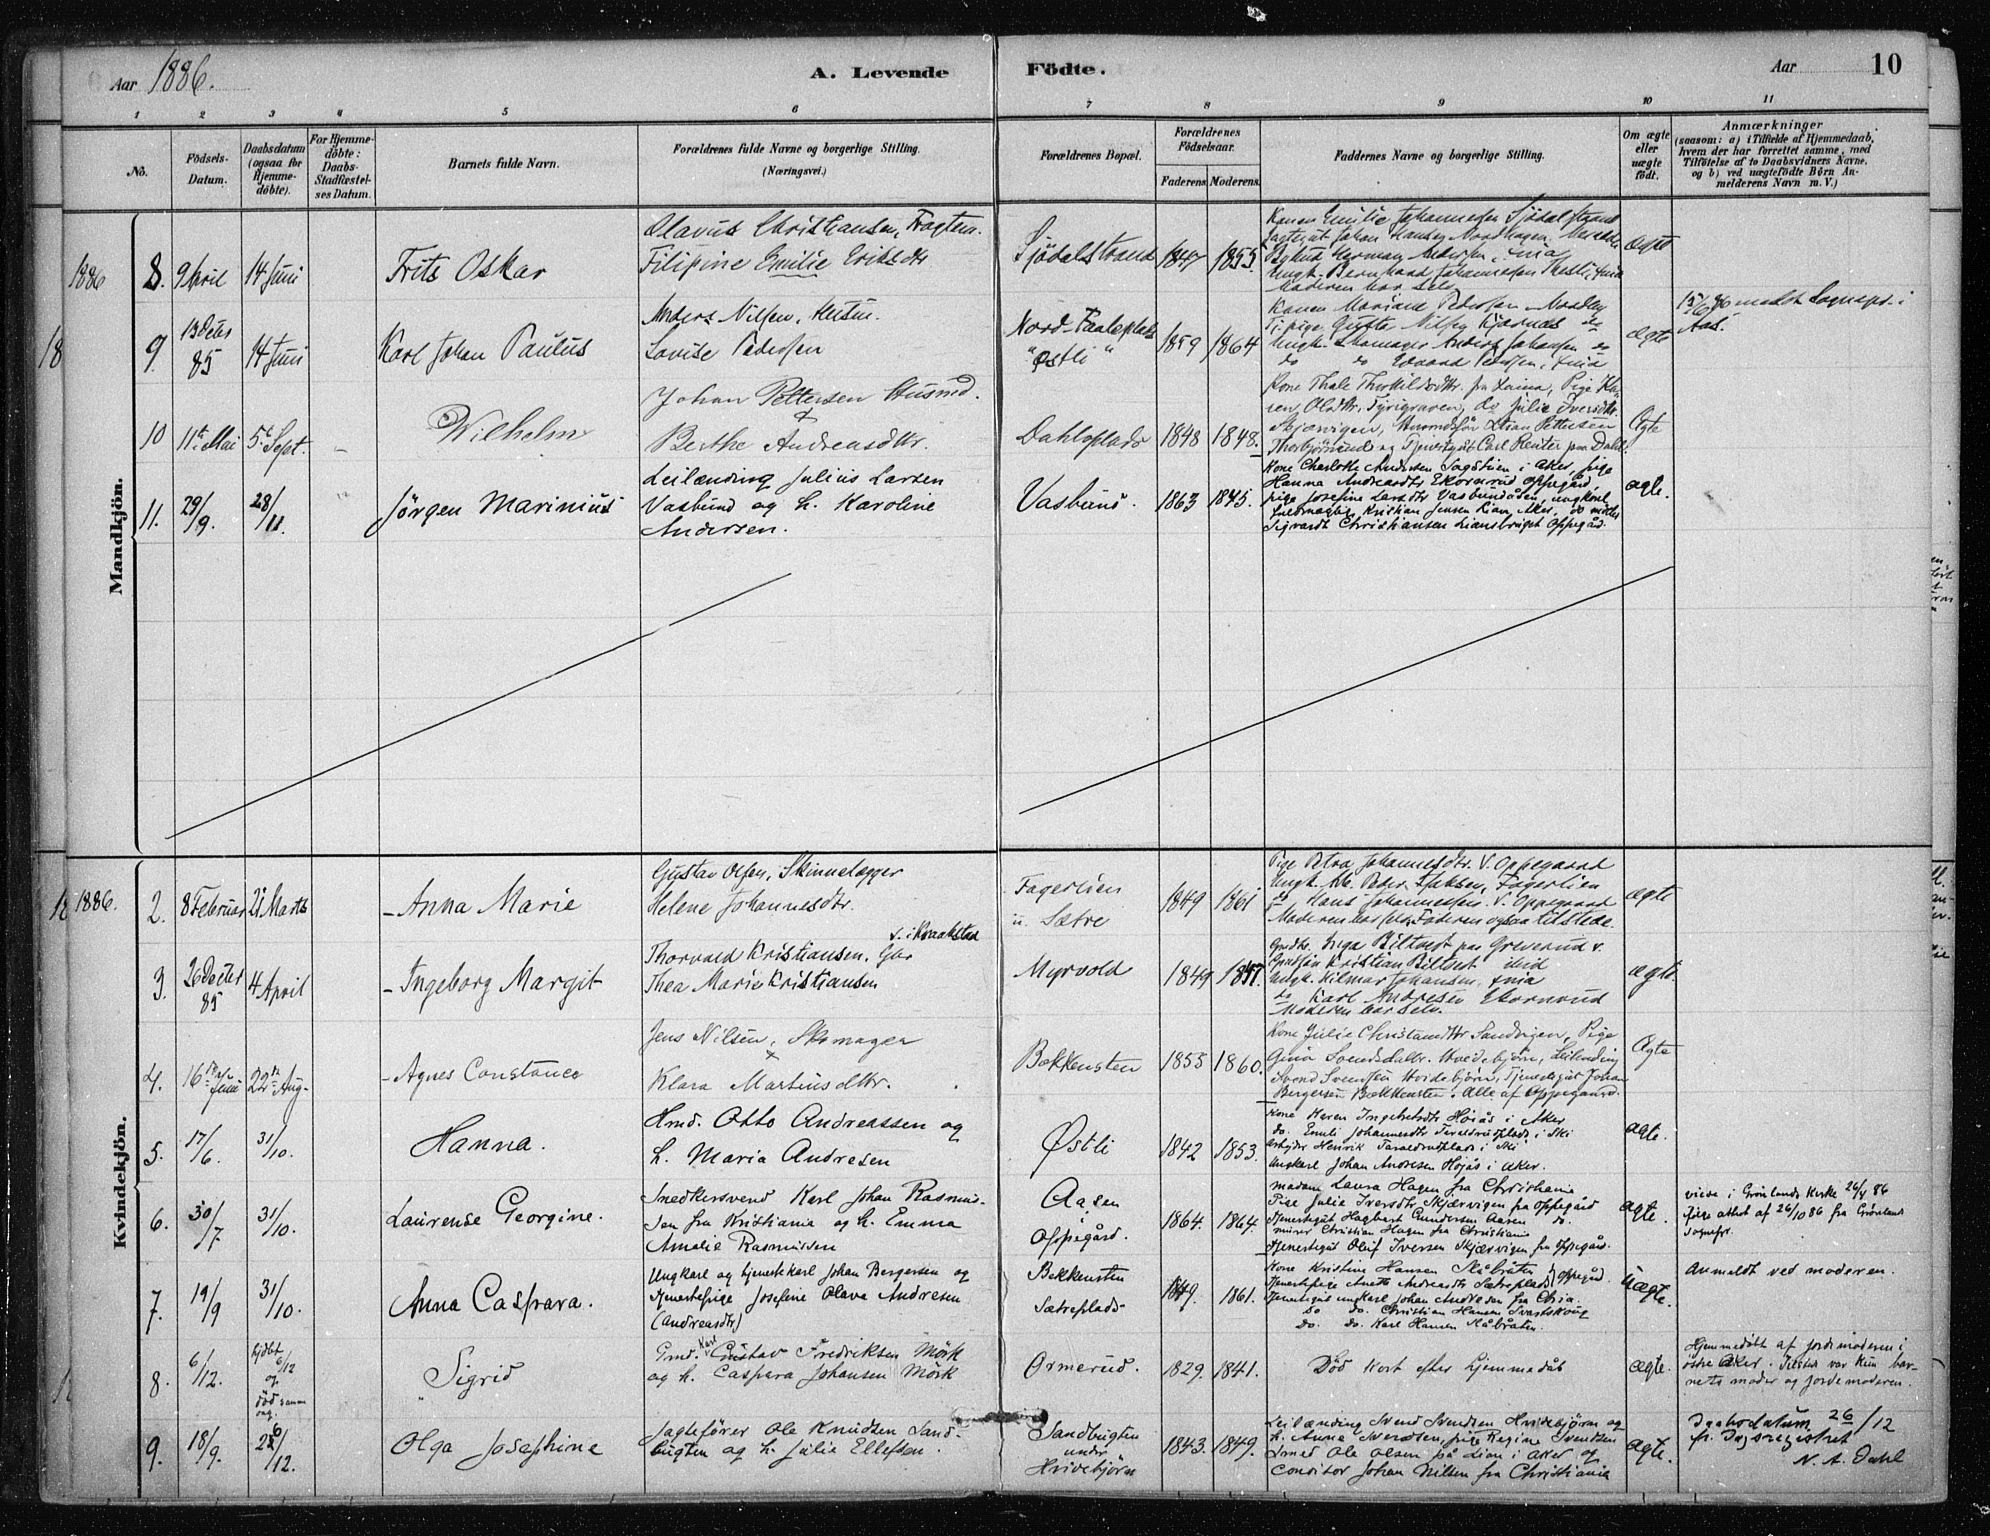 Aar 1886.
A. Levende Födte.
Aar 10
1 2 3 4 5 6 7 8 9 10 11
No.
Födsels-Datum.
Daabsdatum (ogsaa for Hjemme-döbte).
For Hjemme-döbte: Daabs-Stadfæstel-ses Datum.
Barnets fulde Navn.
Forældrenes fulde Navne og borgerlige Stilling.
(Næringsvei.)
Forældrenes Bopæl.
Forældrenes Födselsaar.
Faderens. Moderens.
Faddernes Navne og borgerlige Stilling.
Om ægte eller uægte födt.
Anmærkninger
(saasom: a) i Tilfælde af Hjemmedaab,
hvem der har forrettet samme, med
Tilföielse af to Daabsvidners Navne,
og b) ved uægtefödte Börn An-
melderens Navn m. V.)
Mandkjön.
1886 8. 9 April 14 Juni Frits Oskar
Olavus Christiansen, Fragtem.
Filipine Emilie Eriksdtr
Sjödalstrand 1847 1855
Konen Emilie Johannesen Sjödalstrand
Johan Hansen
Herman Andersen
Bernhard Johannesen
Moderen bar selv
ægte
9. 13 Decbr 85 14 Juni Karl Johan Paulus
Anders Nilsen, Husm.
Lovise Pedersen
Nord-
"Østli"
1859 1864
Konen Mariane Pedersen
Nilsen Kjærnæs do
Ungk. Skomager Anders Johansen do
do do Edvard Pedersen,
ægte
15/6 86 meldt Sognepr. i
Aas.
10 11te Mai 5te Sept. Wilhelm
Johan Pettersen Husmd.
&
Berthe Andreasdtr.
Dahlsplads 1848 1848.
Kone Thale Thorkildsdtr. fra Ka-
ren Olsdtr., Tyrigraven, do Julie Iversdtr.
Skjærvigen, Pettersen
og Tjenestgut Carl Renter paa Dahl.
Ægte
11. 29/9. 28/11. Jørgen Marinius
Leilænding Julius Larsen
Vasbund og h. Karoline
Andersen.
Vasbund. 1863 1845.
Kone Charlotte Andersen Sagstuen i Aker, pige
Hanna Andreasdtr Ekornrud Oppegård,
pige Josefine Larsdtr Vasbundåsen, ungkarl
Kristian Jensen Lian, Aker, do
Sigvardt Christiansen Liansbruget Oppegård.
ægte.
Kvindekjön.
1886. 2. 8 Februar 21 Marts - Anna Marie
Gustav Olsen, Skinnelægger
Helene Johannesdtr.
Fagerlien
u. Sætre
1849 1861
Pige Petra Johannesdtr. V. Oppegaard
Ungk. Peder Isaksen, Fagerlien
do Hans Johannessen V. Oppegaard
Moderen bar selv, Faderen ogsaa tilstede.
ægte
3. 26 Decbr 85 4 April - Ingeborg Margit
f. i Kraakstad
Thorvald Kristiansen, Gbr
Thea Marie Kristiansen
Myrvold 1849 1847.
Gmdtr. Inga Biltvedt paa Greverud v.
Kristian Biltvedt ibid
Ungk. Hilmar Johansen,
do Karl Andresen Ekornrud
Moderen bar selv.
ægte
4. 16de Juni 22de Aug. - Agnes Constance
Jens Nilsen, Skomager
&
Klara Martinusdtr.
Bekkensten 1855 1860.
Kone Julie Christiansdtr Sandvigen, Pige
Gina Svendsdatr. Hvidebjørn, Leilending
Svend Svensen Hvidebjørn, Tjenestegut Johan
Bergersen Bækkensten. Alle af Oppegaard.
Ægte
5. 17/6. 31/10. Hanna.
Hmd. Otto Andreassen og
h. Maria Andresen
Østli 1842 1853.
Kone Karen Ingebretsdtr Høiås i Aker
do. Emili Johannesdtr Taraldrudplads i Ski
Arbejder Henrik Taraldrudplads i Ski
Ungkarl Johan Andresen Høiås i Aker.
ægte.
6. 30/7 31/10. Laurense Georgine.
Snedkersvend Karl Johan Rasmus-
sen fra Kristiania og h. Emma
Amalie Rasmussen
Aasen
i
Oppegård.
1864. 1864.
Madam Laura Hagen fra Christiania
Pige Julie Iversdtr Skjærvigen fra Oppegård
Tjenestegut Hagbart Gundersen Aasen do.
murer Christian Hagen fra Christiania
Tjenestegut Oluf Iversen Skjærvigen fra Oppegård.
ægte.
viede i Grönlands Kirke 26/4 86
ifølge attest af 26/10 86 fra Grönland
sognepr.
7. 19/9 31/10. Anna Caspara.
Ungkarl og tjenestekarl Johan Bergersen og
tjenestepige Josefine Olava Andresen
(Andreasdtr)
Bekkensten
Sætreplads
1849. 1861.
Kone Kristine Hansen Slåbråten
Tjenestepige Anette Andreasdtr Sætreplads } Oppegård.
Tjenestegut ungkarl Johan Andresen fra Chria.
Do do. Christian Hansen Svartskoug
Do. do. Karl Hansen Slåbråten.
Uægte.
Anmeldt ved moderen.
8. 6/12. hjdbt 6/12 og död samme dag. Sigrid
Gmd. Karl Gustav Fredriksen Mörk
og h. Caspara Johansen Mörk
Ormerud. 1829. 1841.
Död kort efter hjemmedåb
ægte.
Hjemmedöbt af jordmoderen i
östre Aker. Tilstede var kun bar-
nets moder og jordemoderen.
9. 18/9. 26/12. Olga Josephine
Jagtefører Ole Knudsen Sand-
bugten og h. Julie Ellefsen.
Sandbugten
under
Hvidebjørn
1843. 1849.
Leilænding Svend Svendsen Hvidebjørn og
h. Anne Svendsen, pige Regine Svendsen
Smed Ole Olsen på Lian i Aker og
Conditor Johan Nilsen fra Christiania
ægte.
Daabsdatum 26/12
fr. Dagsregistret
N. A. Dahl